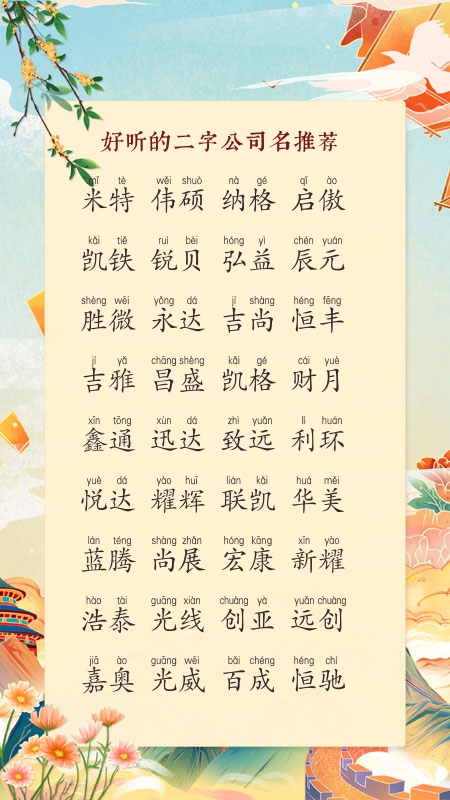 好听的二字公司名推荐
mǐ tè wěi shuò nà gé qǐ ào
米特 伟硕 纳格 启傲
kǎi tiě ruì bèi hóng yì chén yuán
凯铁 锐贝 弘益 辰元
shèng wēi yǒng dá jí shàng héng fēng
胜微 永达 吉尚 恒丰
jí yǎ chāng shèng kǎi gé cái yuè
吉雅 昌盛 凯格 财月
xīn tōng xùn dá zhì yuǎn lì huán
鑫通 迅达 致远 利环
yuè dá yào huī lián kǎi huá měi
悦达 耀辉 联凯 华美
lán téng shàng zhǎn hóng kāng xīn yào
蓝腾 尚展 宏康 新耀
hào tài guāng xiàn chuàng yà yuǎn chuàng
浩泰 光线 创亚 远创
jiā ào guāng wēi bǎi chéng héng chí
嘉奥 光威 百成 恒驰